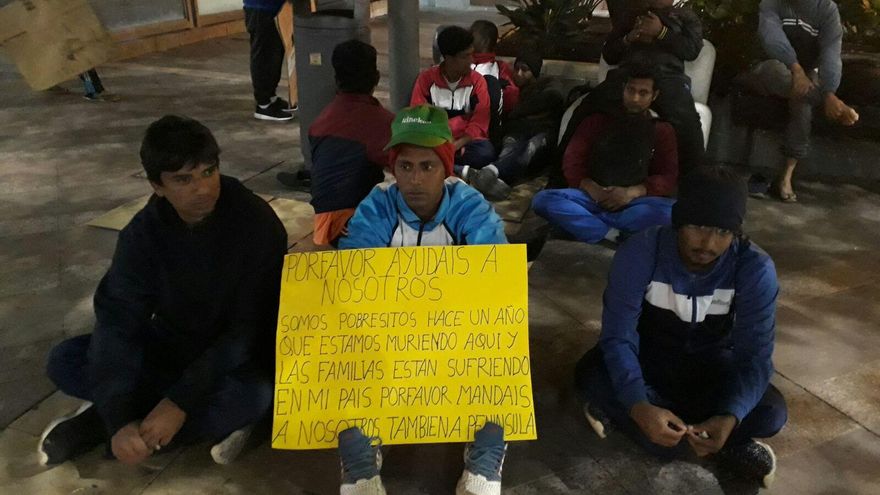 Heineken
PORFAVOR AYUDAIS A
NOSOTROS
SOMOS POBRESITOS HACE UN AÑO
QUE ESTAMOS MURIENDO AQUI Y
LAS FAMILIAS ESTAN SUFRIENDO
EN MI PAIS PORFAVOR MANDAIS
A NOSOTROS TAMBIENA PENINSULA